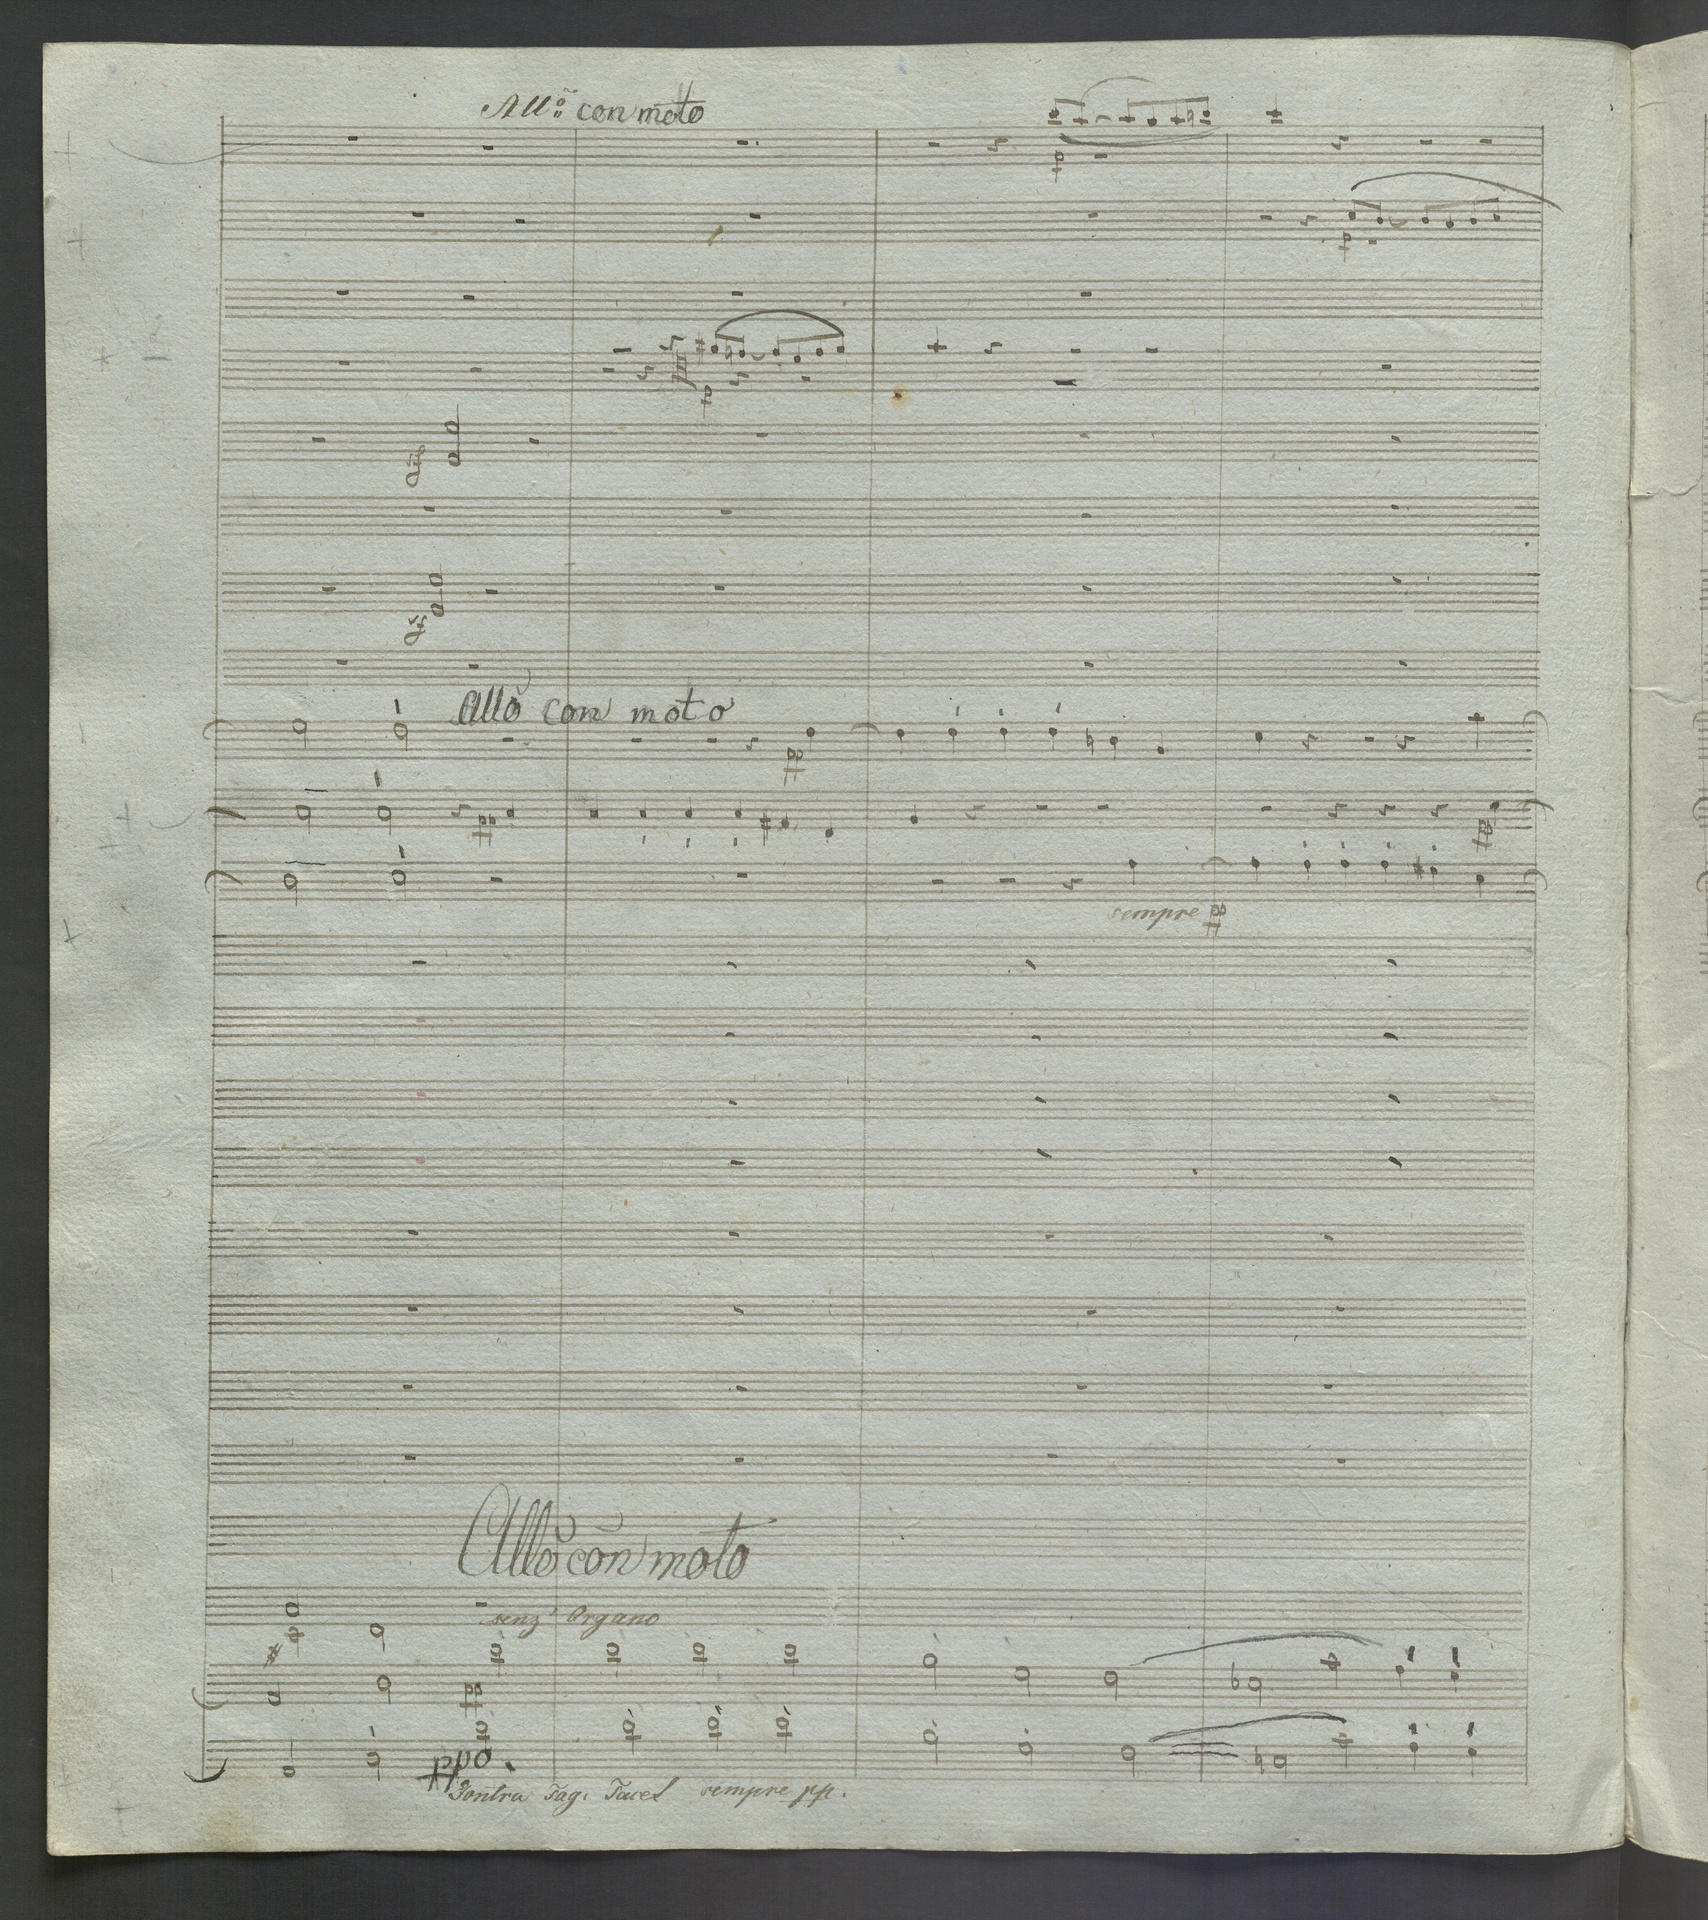 Allo con moto
pp
dim
dim
Allo con moto
pp
pp
pp
sempre pp
Allo con moto
senz' Organo
pp
ppo.
Contra Fag. Tacet sempre pp.